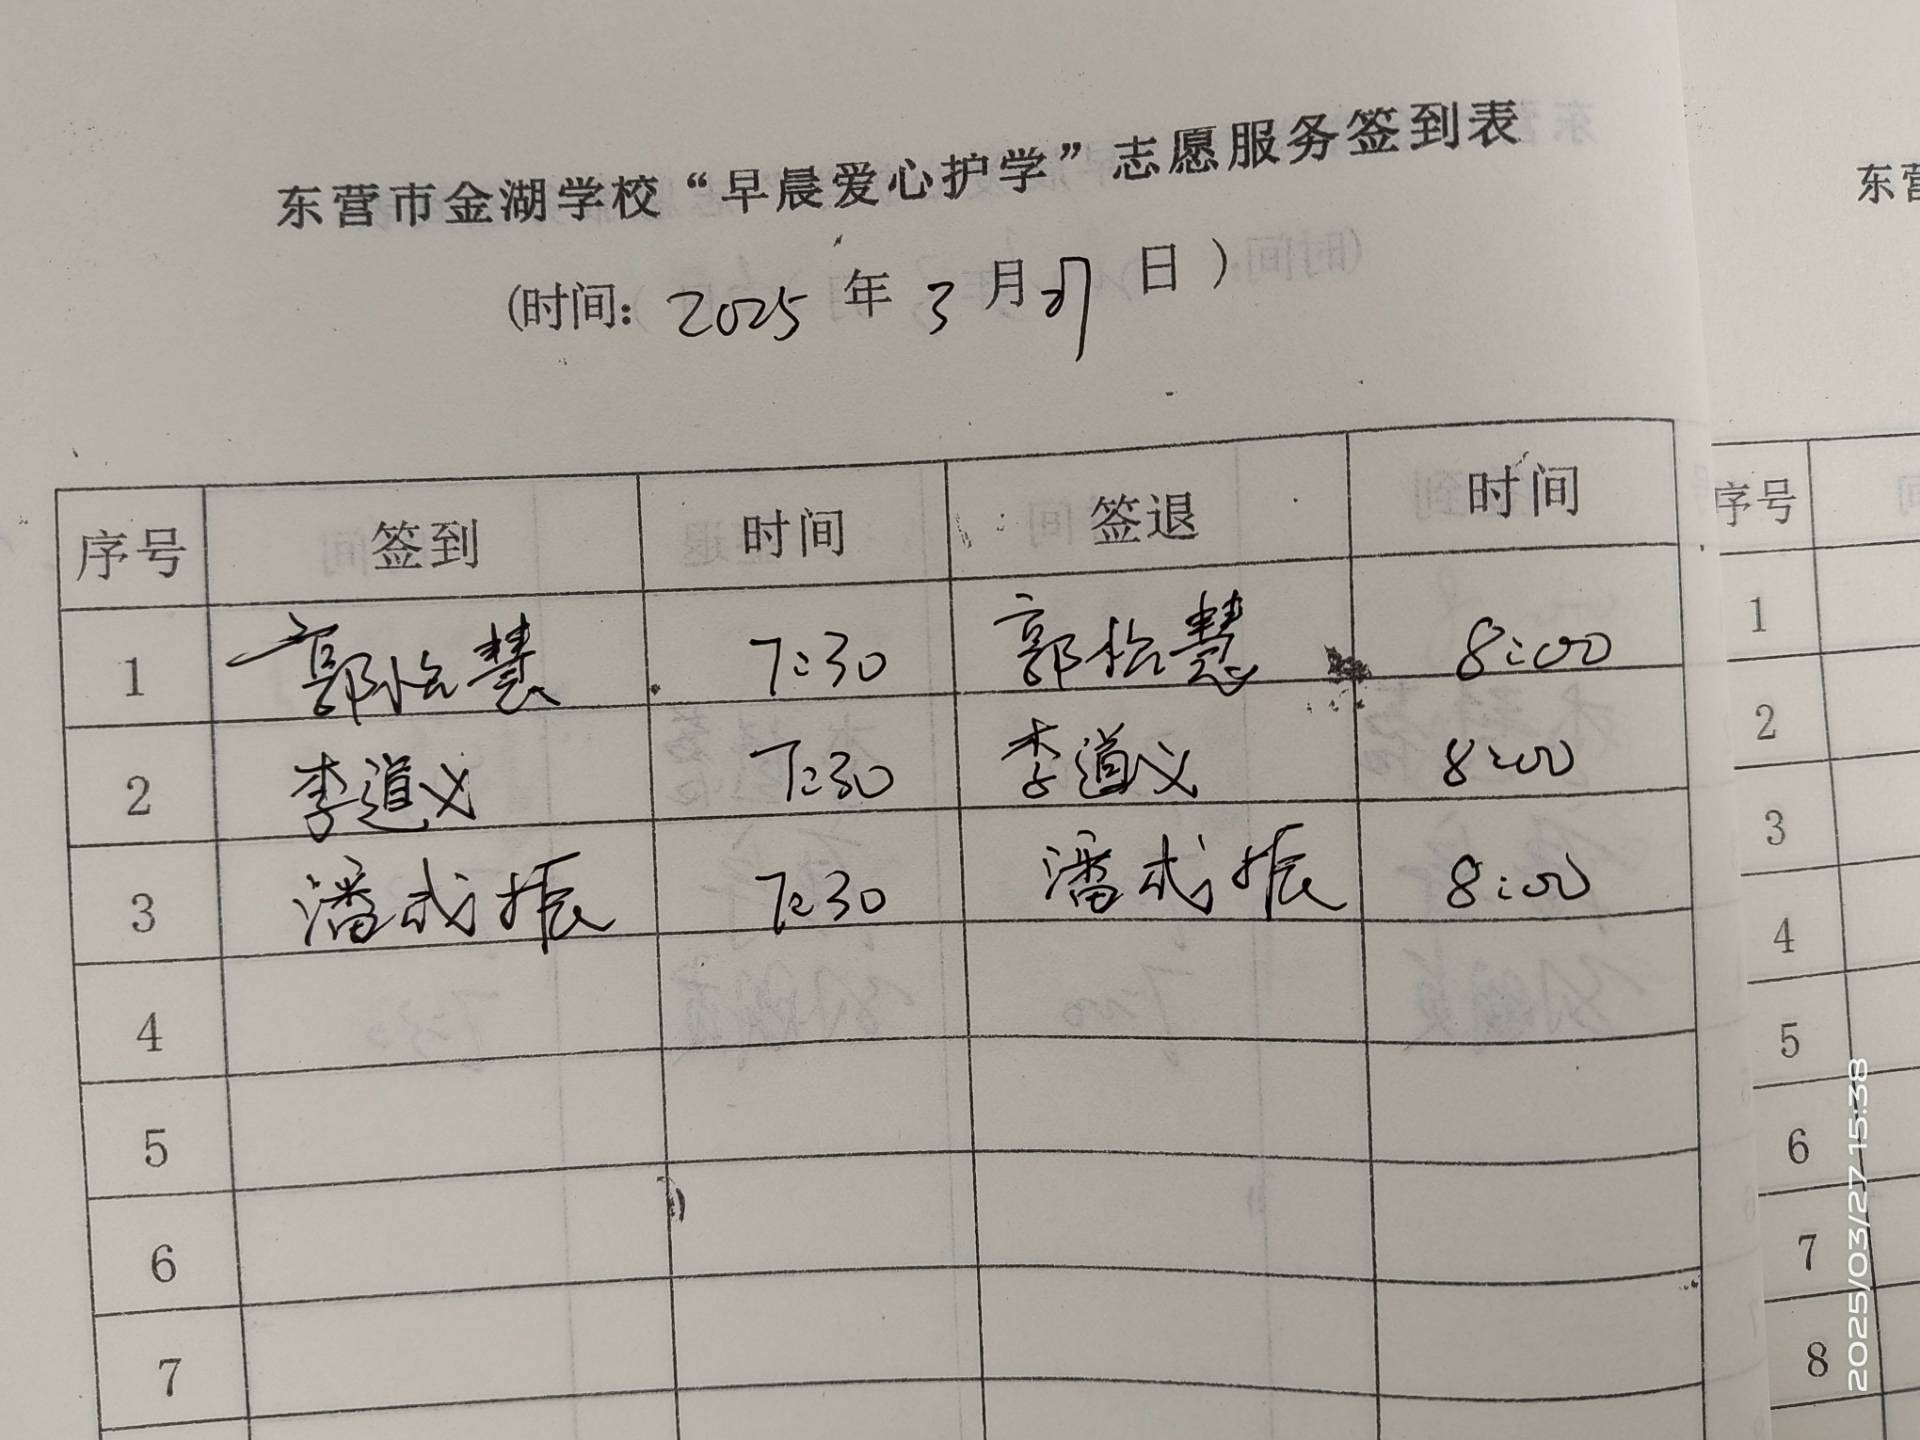 东营市金湖学校“早晨爱心护学”志愿服务签到表
(时间: 2025 年 3 月 27 日 )
序号 签到 时间 签退 时间
1 郭怡慧 7:30 郭怡慧 8:00
2 李道义 7:30 李道义 8:00
3 潘成振 7:30 潘成振 8:00
4
5
6
7
东营
序号
1
2
3
4
5
6
7
8
2025/03/27 15:38